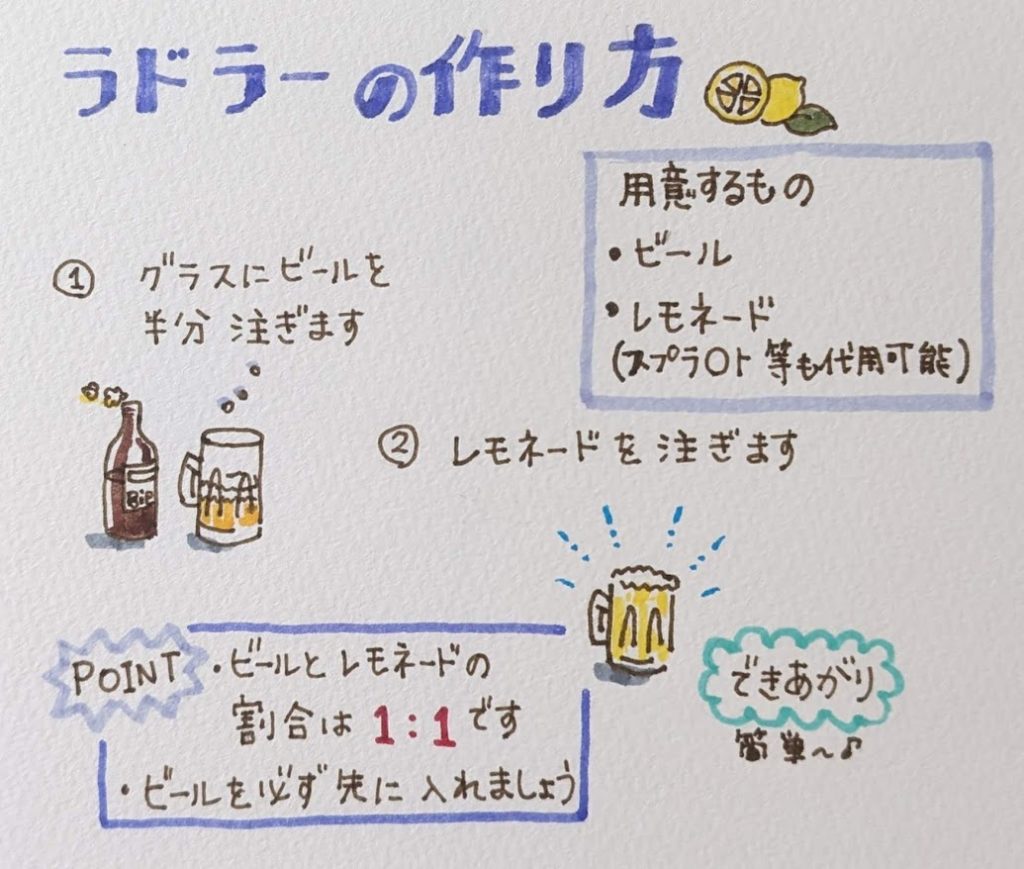 ラドラーの作り方
用意するもの
・ビール
・レモネード
(スプラ〇ト等も代用可能)
① グラスにビールを
半分 注ぎます
② レモネードを 注ぎます
POINT
・ビールと レモネードの
割合は 1:1 です
・ビールを必ず 先に 入れましょう
できあがり
簡単～♪